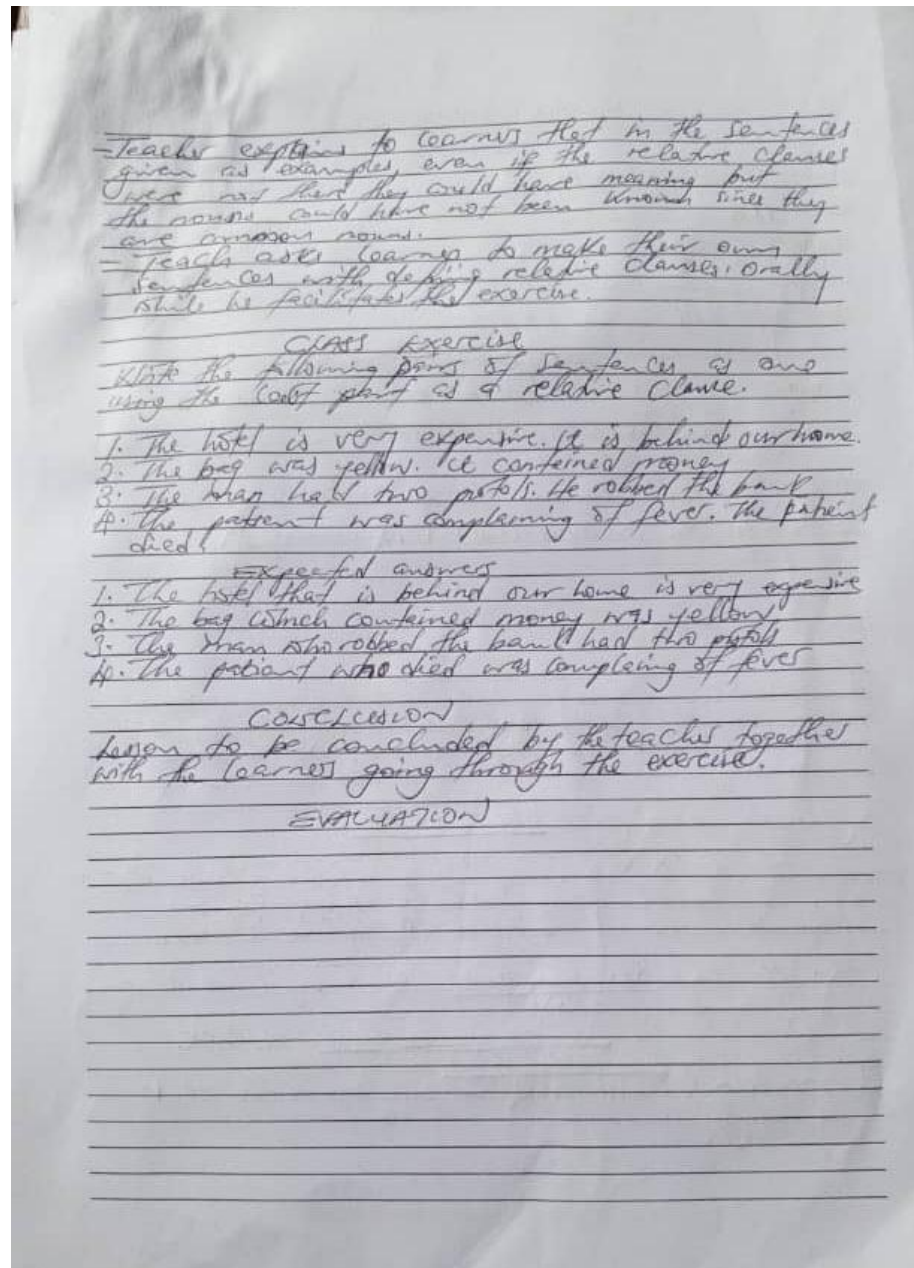 - Teacher explains to learners that in the sentences
given as examples, even if the relative clauses
were not there they could have meaning but
the nouns could have not been known since they
are common nouns.
- Teach asks learners to make their own
sentences with defing relative clauses orally
while he facilitates the exercise.
CLASS EXERCISE
Write the following pairs of sentences as one
using the last part as a relative clause.
1. The hotel is very expensive. It is behind our home.
2. The bag was yellow. It contained money
3. The man had two pistols. He robbed the bank
4. The patient was complaining of fever. The patient
died.
Expected answers
1. The hotel that is behind our home is very expensive
2. The bag which contained money was yellow
3. The man who robbed the bank had two pistols
4. The patient who died was complaing of fever
CONCLUSION
Lesson to be concluded by the teacher together
with the learners going through the exercise.
EVALUATION